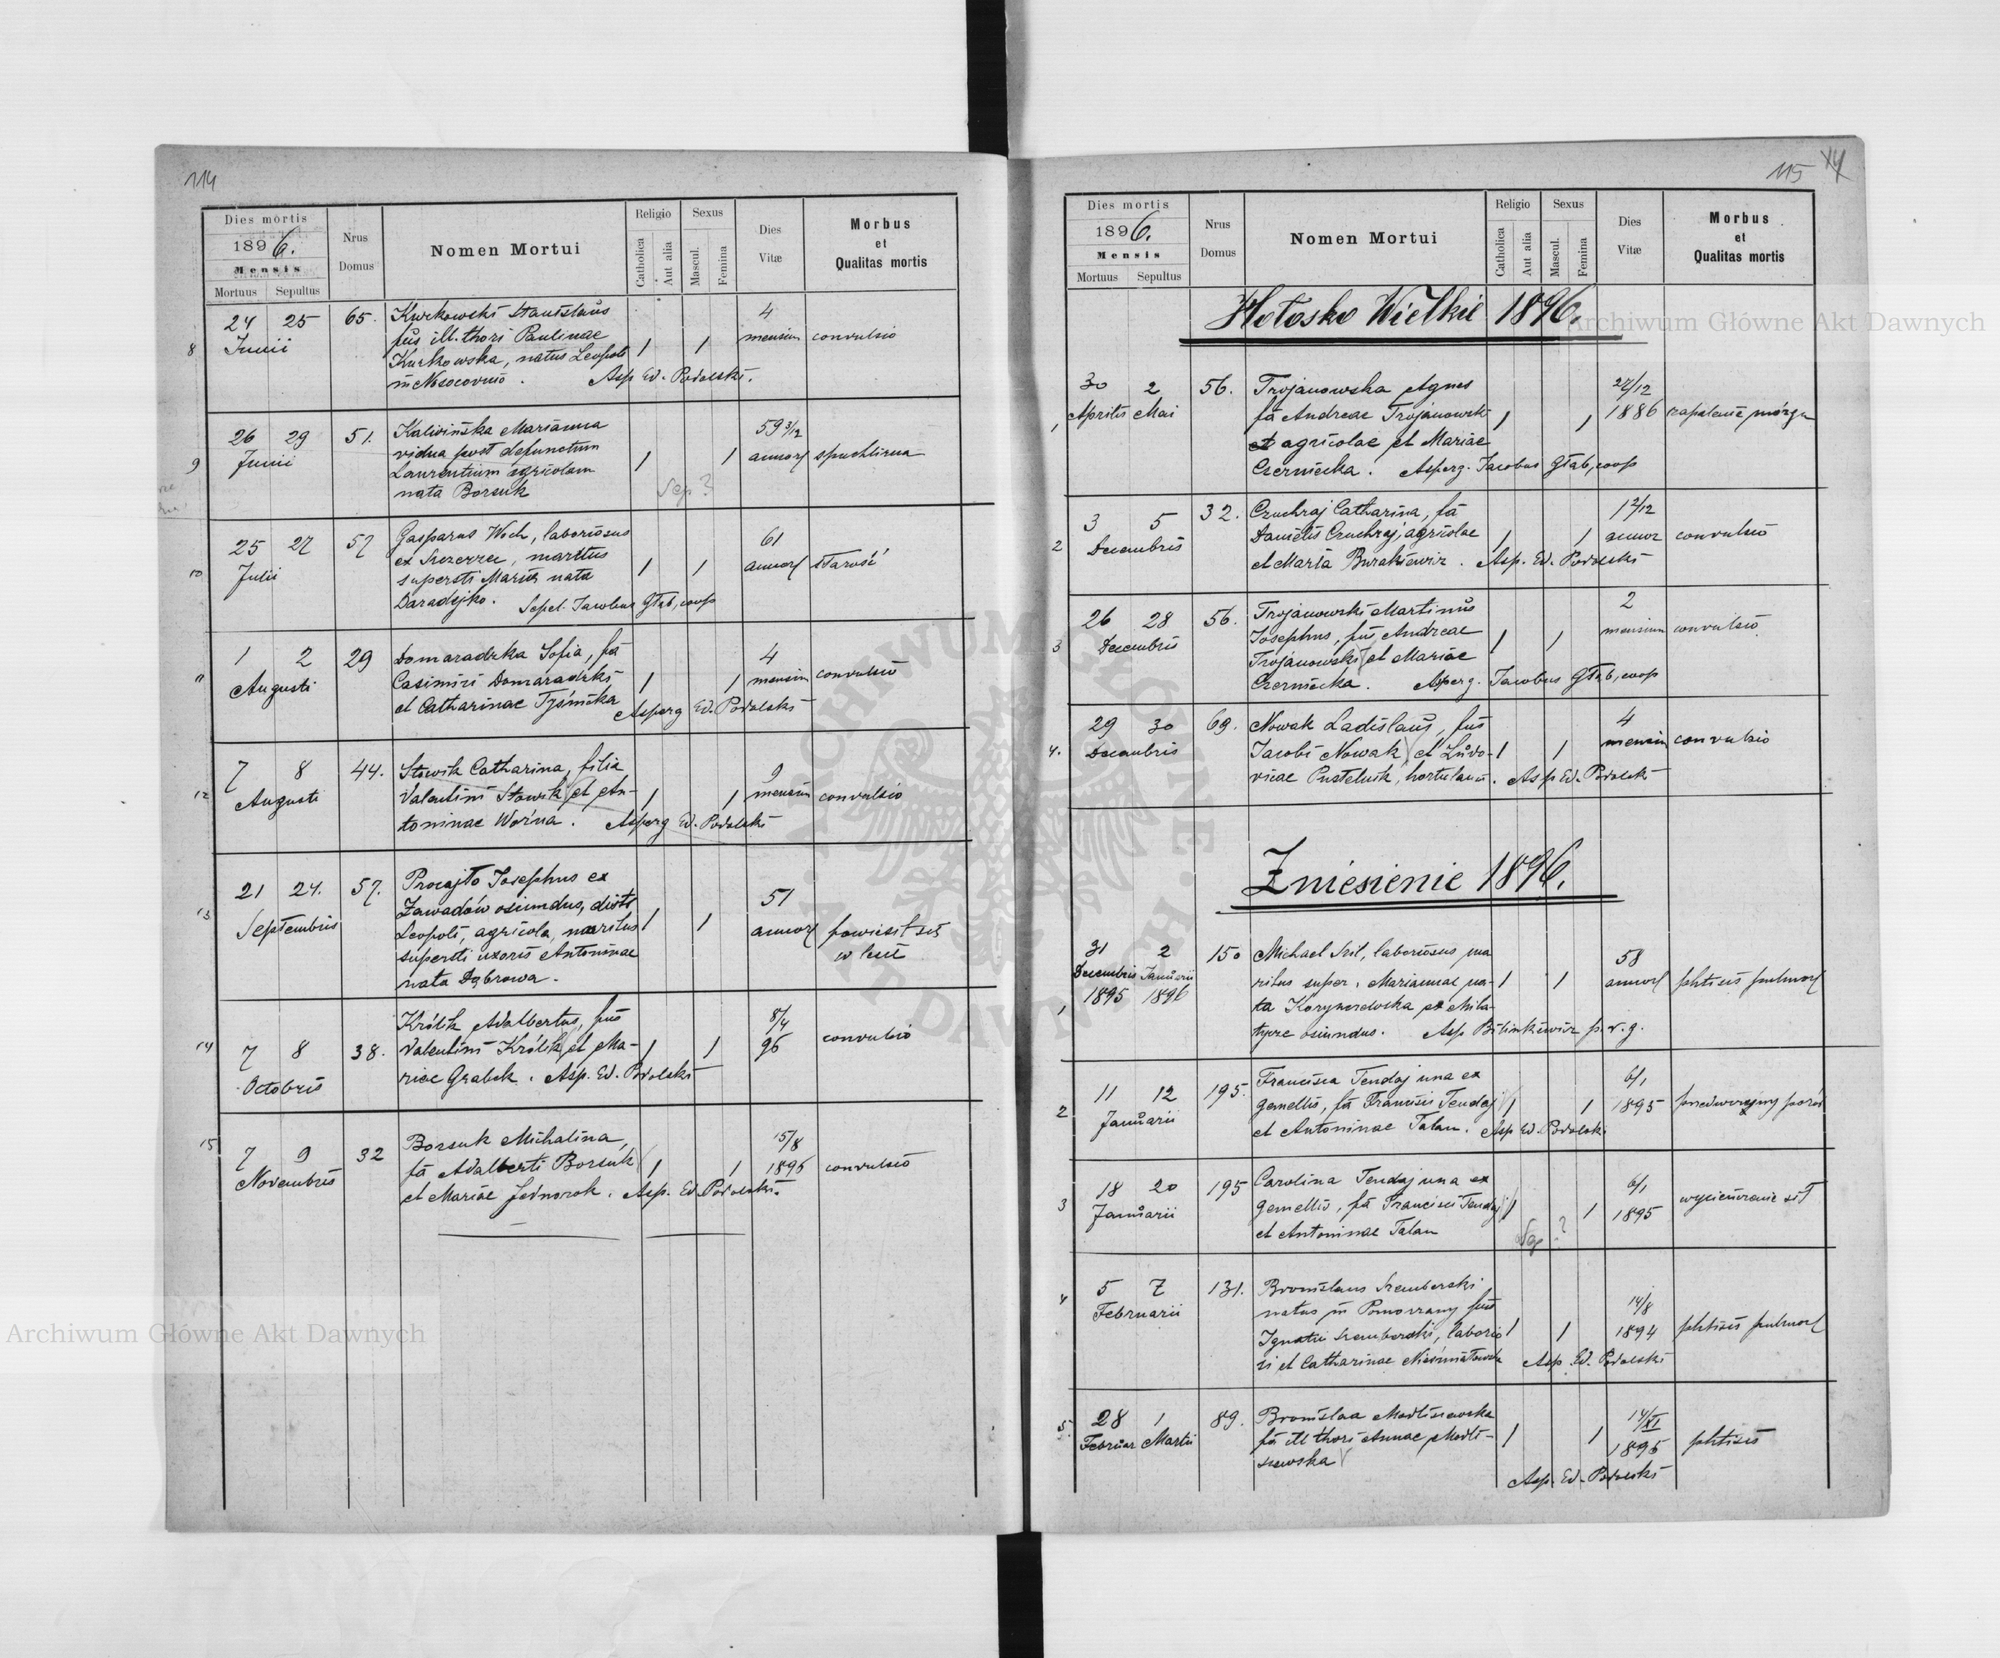 114
Dies mortis
1896.
Mensis
Mortuus Sepultus
Nrus Domus
Nomen Mortui
Religio
Catholica
Aut alia
Sexus
Mascul.
Femina
Dies Vitæ
Morbus et Qualitas mortis
8 24 25 65. Kurkowski Stanislaus 4
Junii fils ill. thori Paulinae mensium convulsio
Kurkowska, natus Leopoli 1 1
in Nosocomio. Asp Ed. Podolski.
9 26 29 51. Kaliwińska Marianna 59 3/12
Junii vidua post defunctum 1 1 annor spuchlizna
Laurentium agricolam
nata Borsuk Sep?
10 25 27 57 Gasparus Wich, laboriosus 61
Julii ex Szczerzec, maritus 1 1 annor starość
supersti Maria nata
Daradejko. Sepel. Jacobus Głąb, coop
11 1 2 29 Domaradzka Sofia, fa 4
Augusti Casimiri Domaradzki 1 1 mensium convulsio
et Catharinae Tyśmicka Asperg Ed. Podolski
12 7 8 44. Słowik Catharina, filia 9
Augusti Valentini Słowik et An- 1 1 mensium convulsio
toninae Woźna. Asperg Ed. Podolski
13 21 24. 57. Procajło Josephus ex 51
Septembris Zawadów oriundus, distr
Leopoli, agricola, maritus 1 1 annor powiesił się
supersti uxoris Antoninae w lesie
nata Dąbrowa.
14 7 8 38. Królik Adalbertus, fils 8/4
Octobris Valentini Królik et Ma- 1 1 96 convulsio
riae Grabek. Asp. Ed. Podolski
15 7 9 32 Borsuk Michalina, 15/8
Novembris fa Adalberti Borsuk 1 1 1896 convulsio
et Mariae Jednorok. Asp. Ed. Podolski.
115
Dies mortis
1896.
Mensis
Mortuus Sepultus
Nrus Domus
Nomen Mortui
Religio
Catholica
Aut alia
Sexus
Mascul.
Femina
Dies Vitæ
Morbus et Qualitas mortis
Hołosko Wielkie 1896.
1 30 2 56. Trojanowska Agnes 24/12
Aprilis Mai fa Andreae Trojanowski 1 1 1886 zapalenie mózgu
agricolae et Mariae
Czernicka. Asperg. Jacobus Głąb, coop
2 3 5 32. Czuchraj Catharina, fa 1 2/12
Decembris Danielis Czuchraj, agricolae 1 1 annor convulsio
et Maria Burakiewicz. Asp. Ed. Podolski
3 26 28 56. Trojanowski Martinus 2
Decembris Josephus, fils Andreae 1 1 mensium convulsio
Trojanowski et Mariae
Czernicka. Asperg. Jacobus Głąb, coop
4. 29 30 69. Nowak Ladislaus, fils 4
Decembris Jacobi Nowak et Ludo- 1 1 mensium convulsio
vicae Pustelnik, hortulani. Asp Ed. Podolski
Zniesienie 1896.
1 31 2 150 Michael Szil, laboriosus ma 58
Decembris Januarii ritus super. Mariannae na- 1 1 annor phtisis pulmor
1895 1896 ta Korzyniowska ex Mila-
tycze oriundus. Asp Bilinkiewicz p. r. g.
2 11 12 195. Francisca Tendaj una ex 6/1
Januarii gemellis, fa Francisci Tendaj 1 1 1895 przedwczesny poród
et Antoninae Talan. Asp Ed. Podolski
3 18 20 195 Carolina Tendaj una ex 6/1
Januarii gemellis, fa Francisci Tendaj 1 1 1895 wycieńczenie sił
et Antoninae Talan
4 5 7 131. Bronislaus Szemberski
Februarii natus in Pomorzany fils 14/8
Ignatii Szemberski, laborio 1 1 1894 phtisis pulmor
si et Catharinae Asp. Ed. Podolski
5. 28 1 89. Bronislaa Modliszewska 14/XI
Februar Martii fa ill thori Annae Modli- 1 1 1895 phtisis
szewska
Asp. Ed. Podolski
Archiwum Główne Akt Dawnych
Archiwum Główne Akt Dawnych
ARCHIWUM GŁÓWNE AKT DAWNYCH